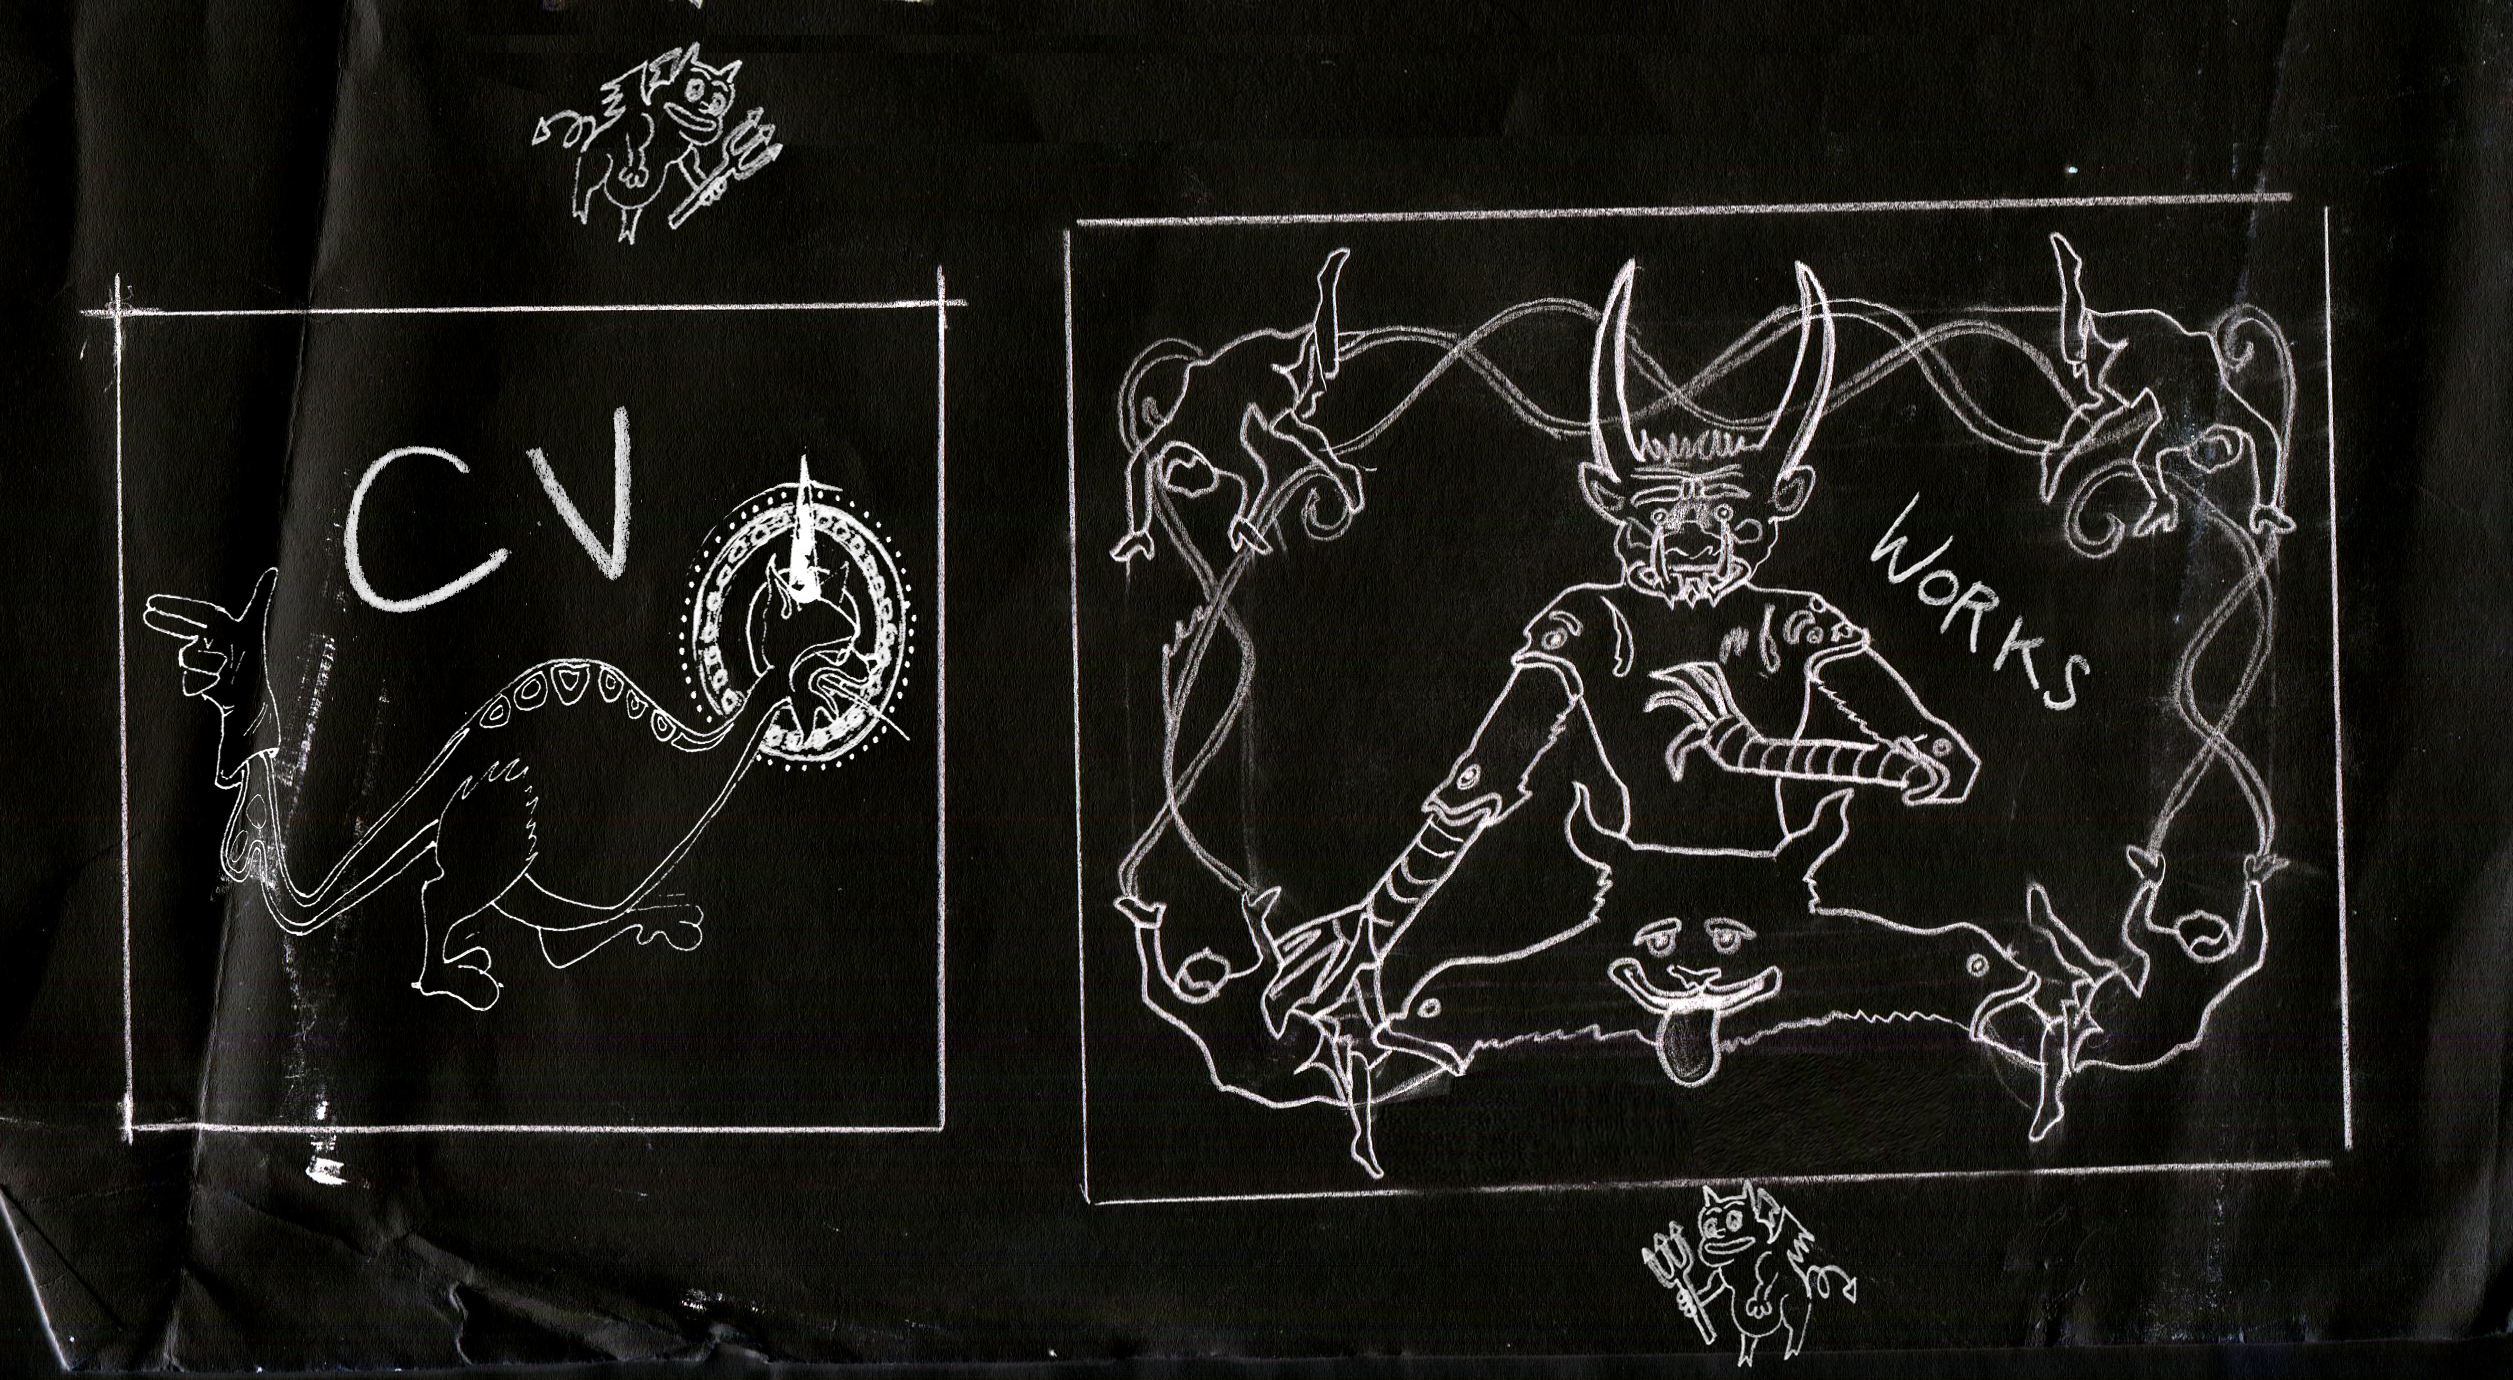 CV
WORKS